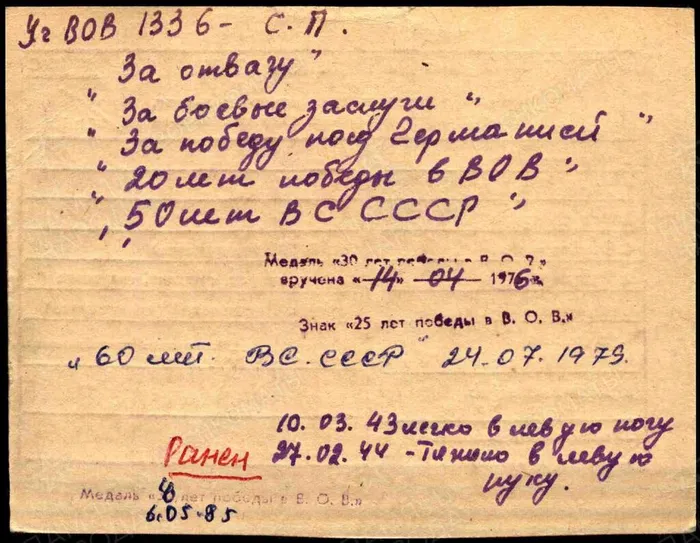 Уг ВОВ 1336 - С. П.
За отвагу"
"За боевые заслуги"
"За победу над Германией"
"20 лет победы в ВОВ"
"50 лет ВС СССР"
Медаль «30 лет победы в В. О. В.»
вручена «14» 04 1976 г.
Знак «25 лет победы в В. О. В.»
"60 лет. ВС. СССР" 24.07.1979.
10. 03. 43 легко в левую ногу
Ранен 27.02.44 - Тяжело в левую
руку.
Медаль «40 лет победы в В. О. В.»
6.05.85